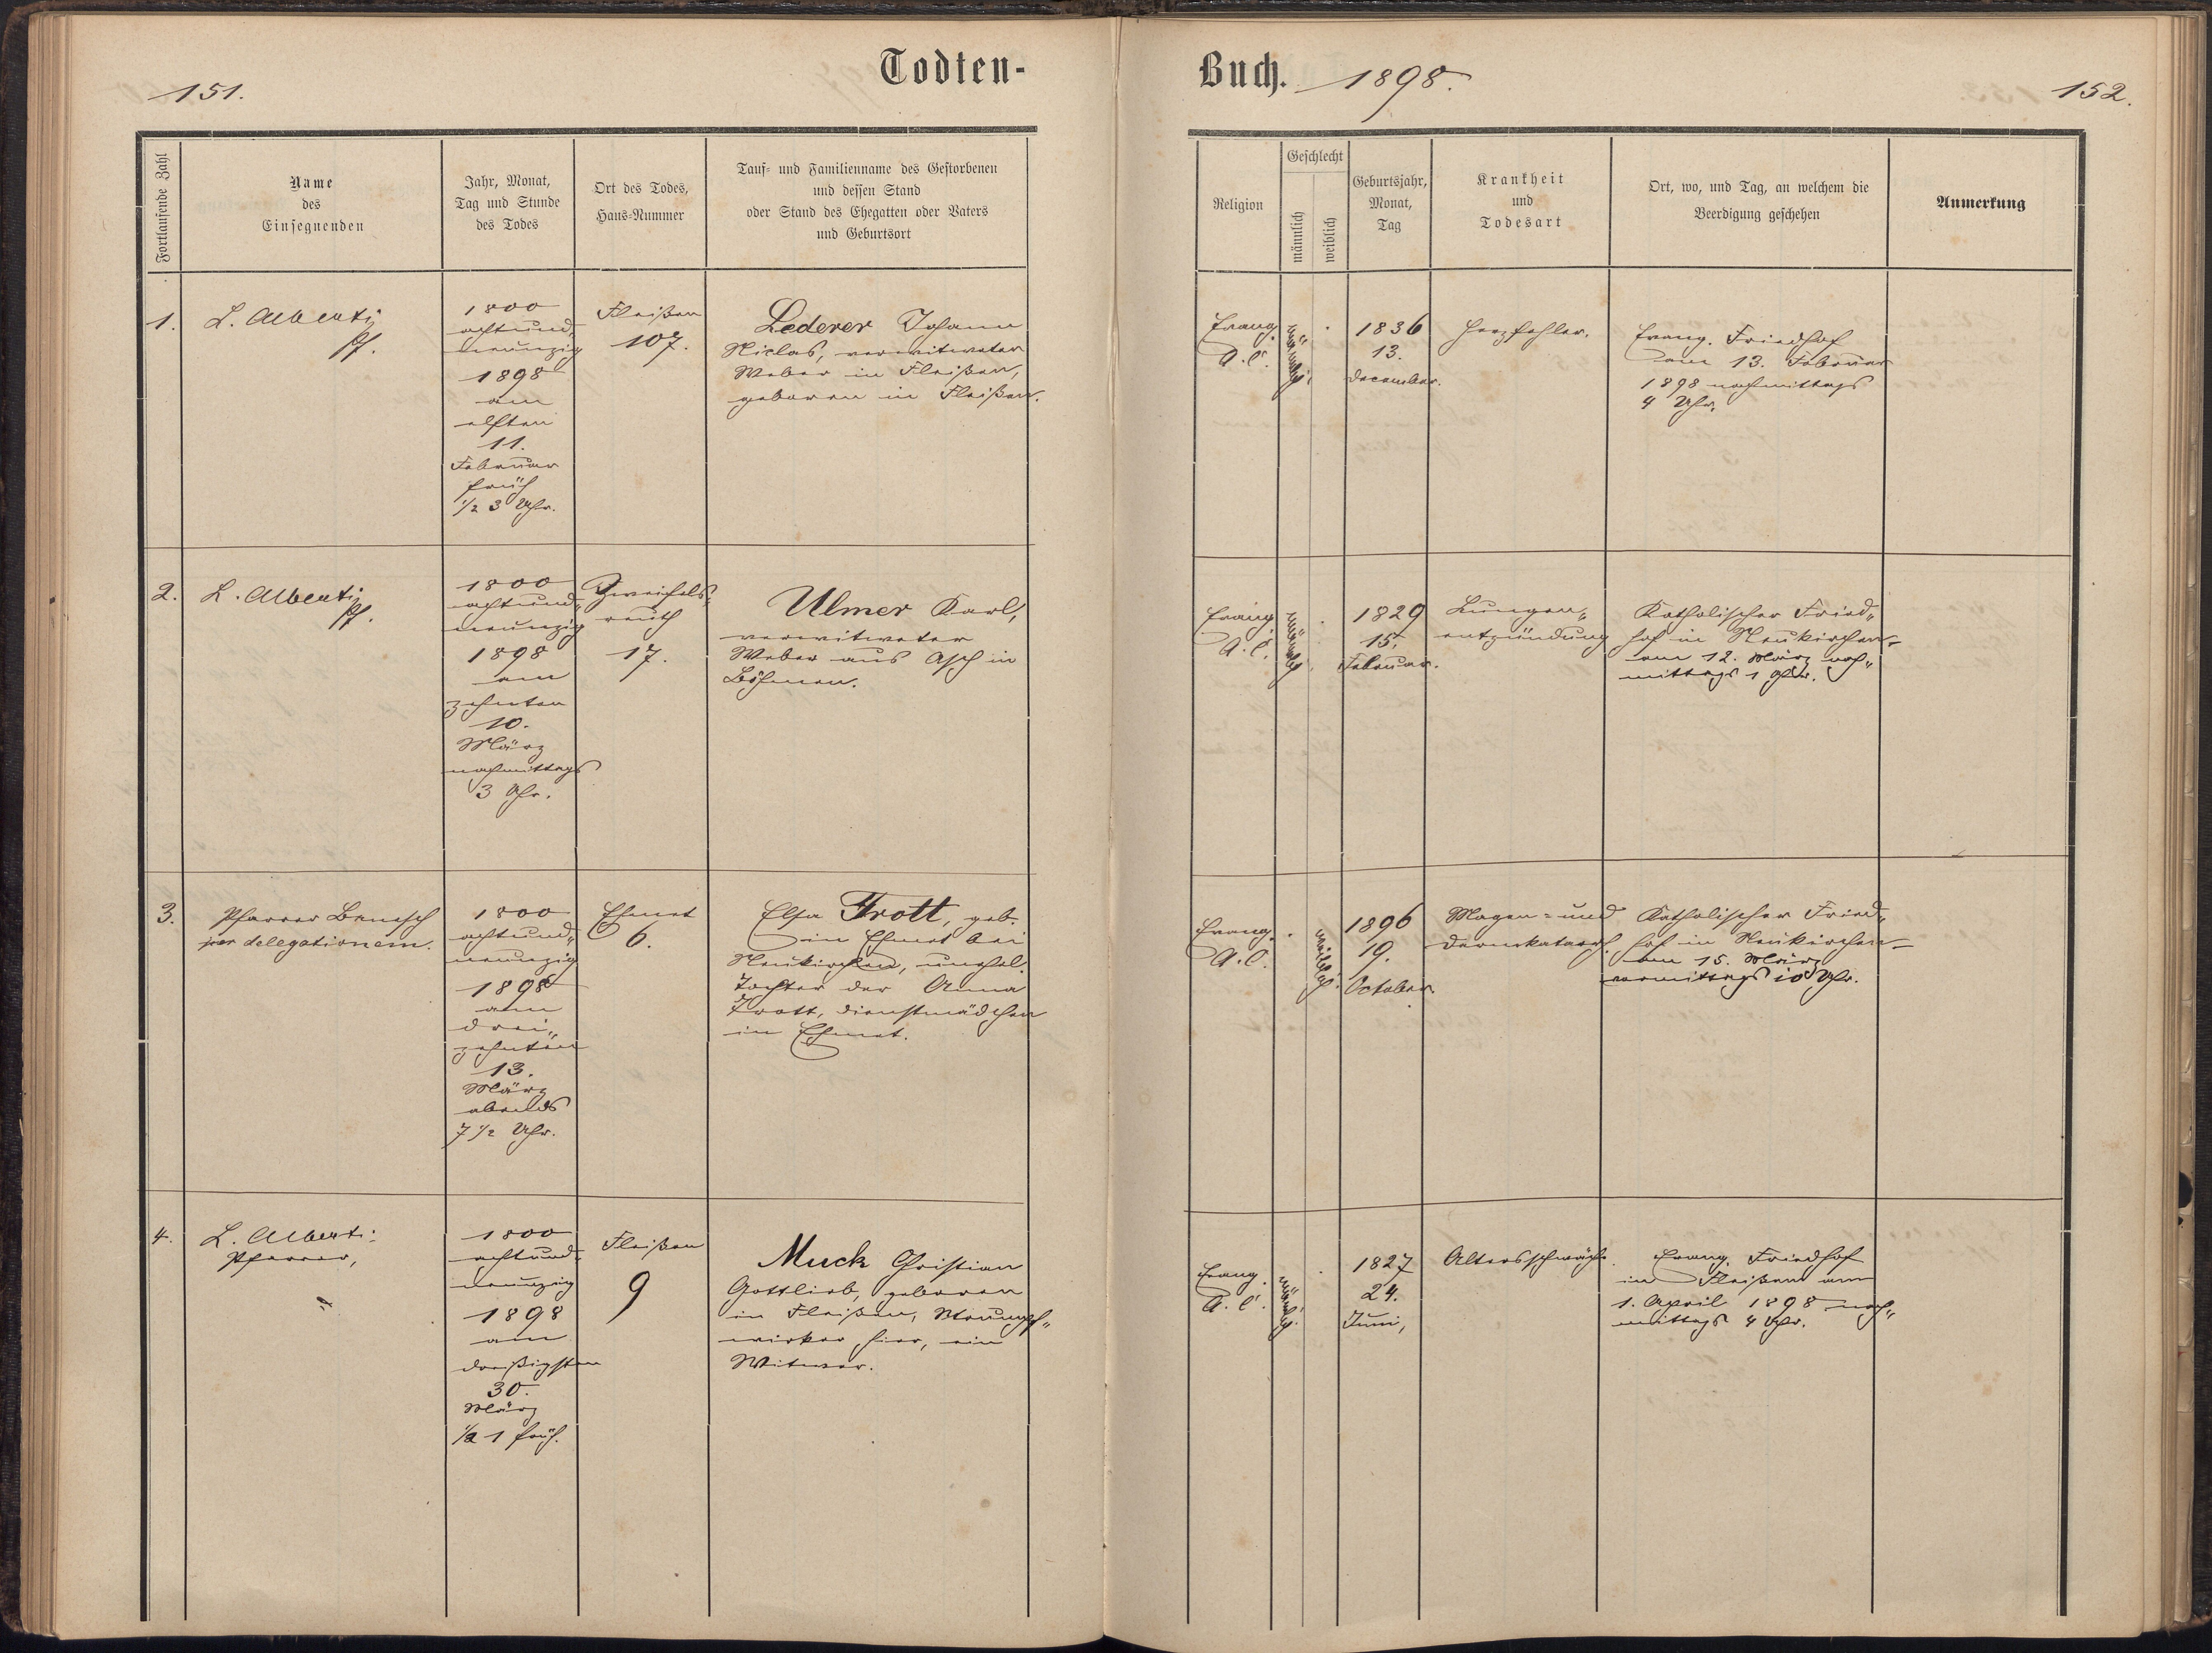 151.
Todten-
Buch. 1898.
152.
Fortlaufende Zahl
Name
des
Einsegnenden
Jahr, Monat,
Tag und Stunde
des Todes
Ort des Todes,
Haus-Nummer
Tauf- und Familienname des Gestorbenen
und dessen Stand
oder Stand des Ehegatten oder Vaters
und Geburtsort
Religion
Geschlecht
männlich
weiblich
Geburtsjahr,
Monat,
Tag
Krankheit
und
Todesart
Ort, wo, und Tag, an welchem die
Beerdigung geschehen
Anmerkung
1.
L. Alberti
Pf.
1800
achtund„
neunzig
1898
am
elften
11.
Februar
früh
1/2 3 Uhr.
Fleißen
107.
Lederer Johann
Niclas, verwitweter
Weber in Fleißen,
geboren in Fleißen.
Evang.
A. C.
männlich.
1836
13.
December.
Herzfehler.
Evang. Friedhof
am 13. Februar
1898 nachmittags
4 Uhr.
2.
L. Alberti
Pf.
1800
achtund„
neunzig
1898
am
zehnten
10.
März
nachmittags
3 Uhr.
Zweifels„
reuth
17.
Ulmer Karl,
verwitweter
Weber aus Asch in
Böhmen.
Evang.
A. C.
männlich.
1829
15.
Februar.
Lungen„
entzündung
Katholischer Fried„
hof in Neukirchen
am 12. März nach„
mittags 1 Uhr.
3.
Pfarrer Benesch
per delegationem.
1800
achtund„
neunzig
1898
am
drei„
zehnten
13.
März
abends
7 1/2 Uhr.
Ehmet
6.
Elsa Trott, geb.
in Ehmet bei
Neukirchen, unehel.
Tochter der Anna
Trott, Dienstmädchen
in Ehmet.
Evang.
A. C.
weiblich.
1896
19.
October.
Magen- und
Darmkatarrh.
Katholischer Fried„
hof in Neukirchen
am 15. März
vormittags 10 Uhr.
4.
L. Alberti
Pfarrer,
1800
achtund„
neunzig
1898
am
dreißigsten
30.
März
1/2 1 früh.
Fleißen
9
Muck Christian
Gottlieb, geboren
in Fleißen, Strumpf„
wirker hier, ein
Witwer.
Evang.
A. C.
männlich.
1827
24.
Juni,
Altersschwäche.
Evang. Friedhof
in Fleißen am
1. April 1898 nach„
mittags 4 Uhr.